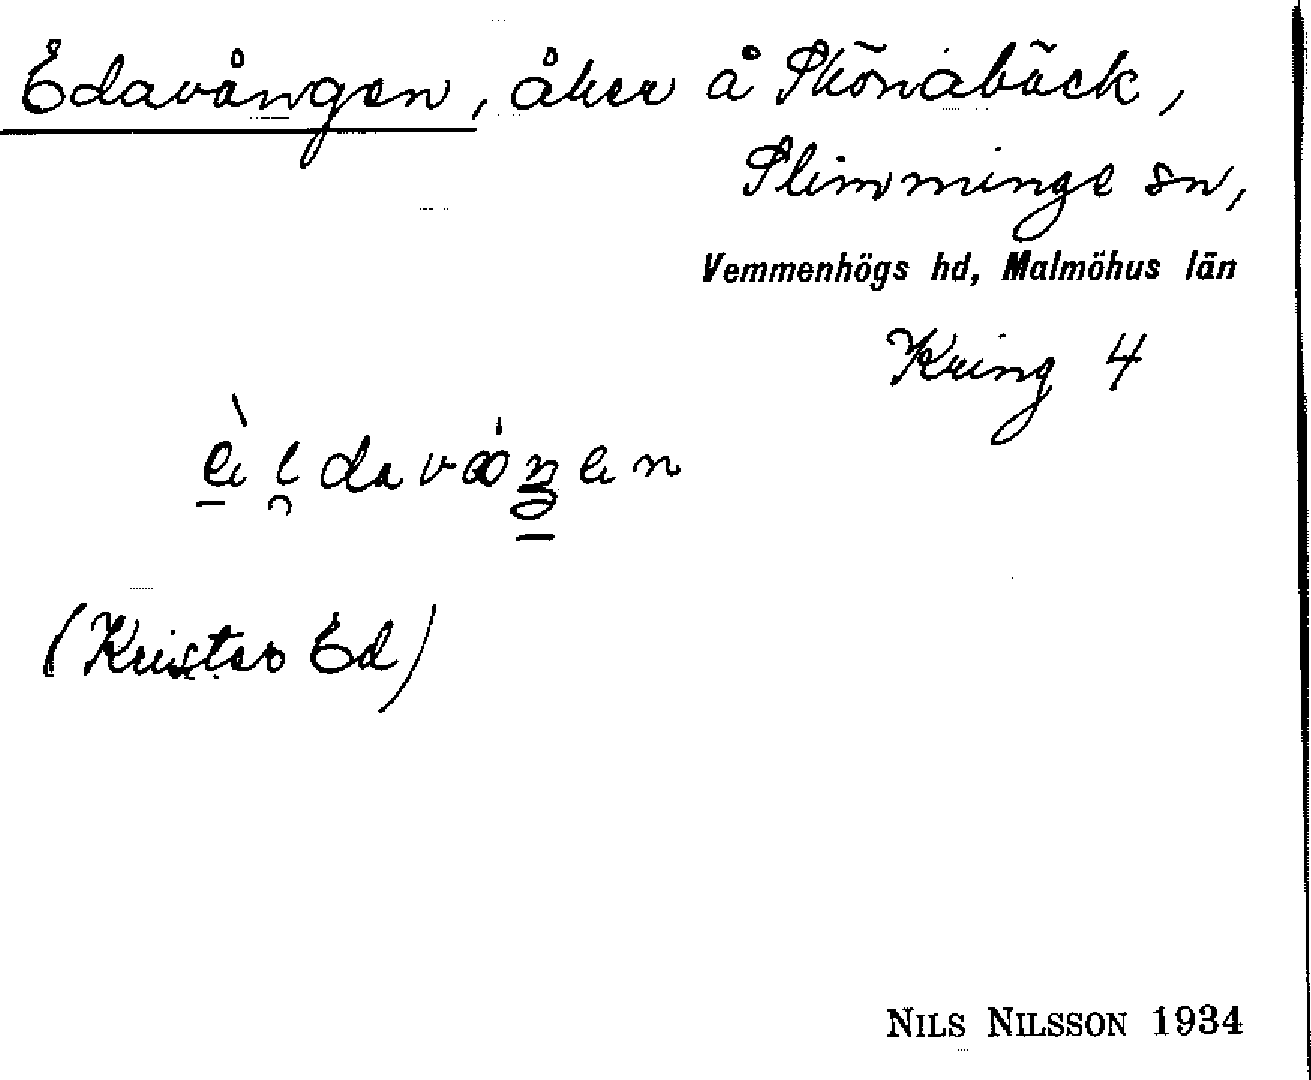 Edavången, åker å Skönabäck,
Slimminge sn,
Vemmenhögs hd, Malmöhus län
Kring 4
(Krister Ed)
NILS NILSSON 1934